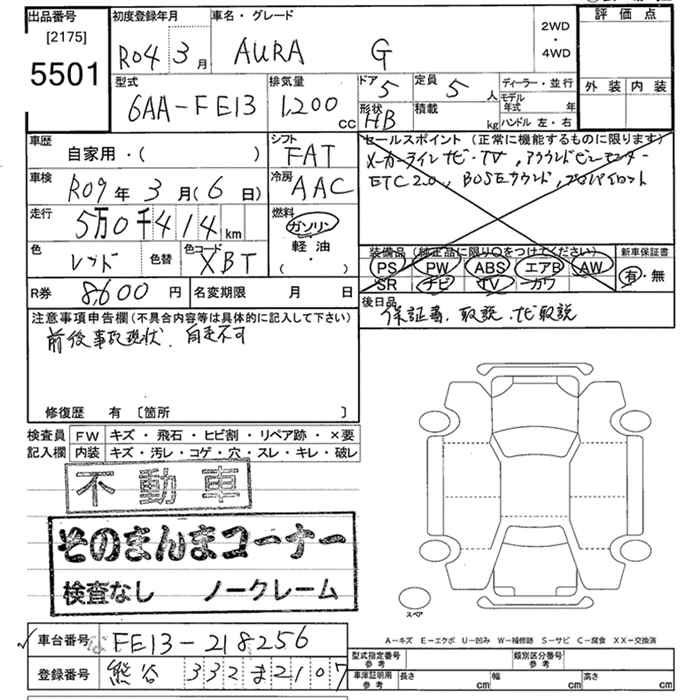 出品番号 初度登録年月 車名・グレード 評価点
[2175] R04年3月 AURA G 2WD ・ 4WD
5501
型式 排気量 ドア 5 定員 5人 ディーラー・並行 外装 内装
6AA-FE13 1,200cc 形状 HB 積載 kg モデル年式 年
ハンドル 左・右
車歴 自家用・( ) シフト FAT セールスポイント(正常に機能するものに限ります)
メーカーラインナビ・TV, アラウンドビューモニター
車検 R09年3月(6日) 冷房 AAC ETC2.0, BOSEサウンド, プロパイロット
走行 5万0千414km 燃料 ガソリン
軽油
( ・ )
色 レッド 色替 色コード XBT 装備品(純正品に限り○をつけてください) 新車保証書
PS PW ABS エアB AW 有・無
SR ナビ TV カワ
R券 8,600円 名変期限 月 日 後日品
保証書、取説、ナビ取説
注意事項申告欄(不具合内容等は具体的に記入して下さい)
前後事故現状、自走不可
修復歴 有 〔箇所 〕
検査員 FW キズ・飛石・ヒビ割・リペア跡・×要
記入欄 内装 キズ・汚レ・コゲ・穴・スレ・キレ・破レ
不動車
そのまんまコーナー
検査なし ノークレーム
スペア
A-キズ E-エクボ U-凹み W-補修跡 S-サビ C-腐食 XX-交換済
車台番号 FE13-218256 型式指定番号 参考 類別区分番号 参考
登録番号 熊谷 332ま2107 車庫証明用 参考 長さ cm 幅 cm 高さ cm